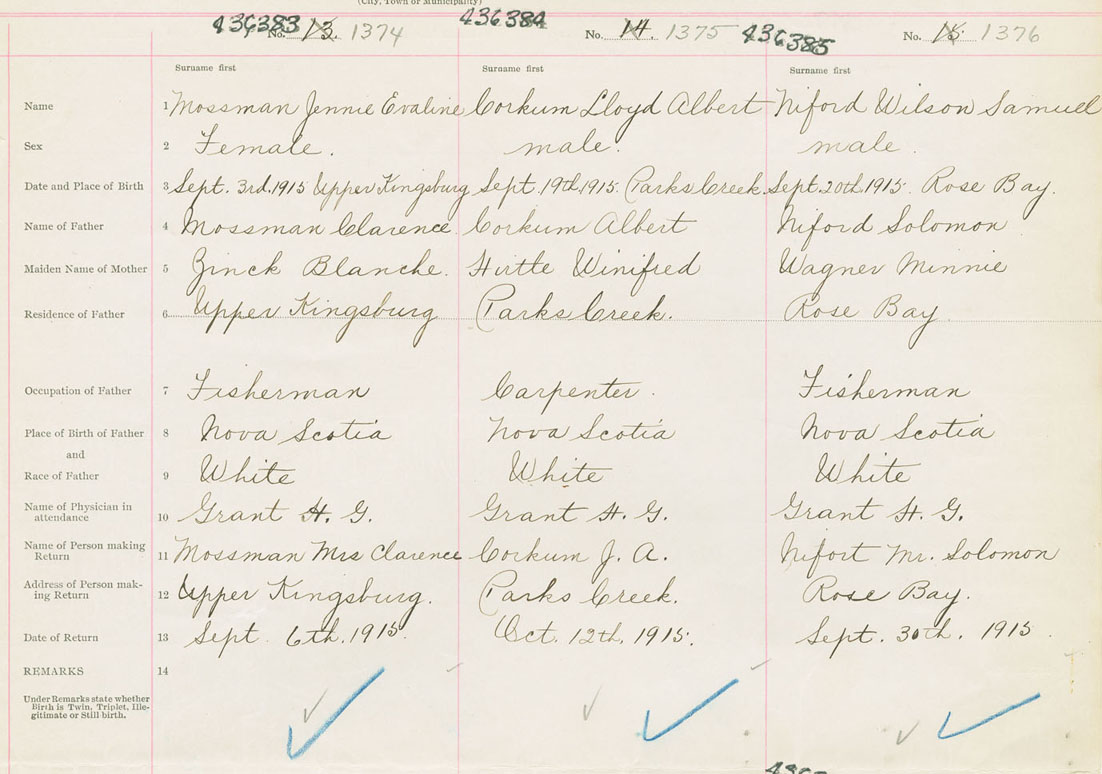 (City, Town or Municipality)
436383 No. 13. 1374 436384 No. 14. 1375 436385 No. 15. 1376
Surname first Surname first Surname first
Name 1 Mossman Jennie Evaline Corkum Lloyd Albert Niford Wilson Samuel
Sex 2 Female. male. male.
Date and Place of Birth 3 Sept. 3rd. 1915 Upper Kingsburg Sept. 19th 1915. Parks Creek. Sept. 20th 1915. Rose Bay.
Name of Father 4 Mossman Clarence. Corkum Albert Niford Solomon
Maiden Name of Mother 5 Zinck Blanche. Hirtle Winifred Wagner Minnie
Residence of Father 6 Upper Kingsburg Parks Creek. Rose Bay.
Occupation of Father 7 Fisherman Carpenter. Fisherman
Place of Birth of Father 8 Nova Scotia Nova Scotia Nova Scotia
and
Race of Father 9 White White White
Name of Physician in
attendance 10 Grant H. G. Grant H. G. Grant H. G.
Name of Person making
Return 11 Mossman Mrs Clarence Corkum J. A. Nifort Mr. Solomon
Address of Person mak-
ing Return 12 Upper Kingsburg. Parks Creek. Rose Bay.
Date of Return 13 Sept. 6th. 1915. Oct. 12th. 1915. Sept. 30th. 1915.
REMARKS 14
Under Remarks state whether
Birth is Twin, Triplet, Ille-
gitimate or Still birth.